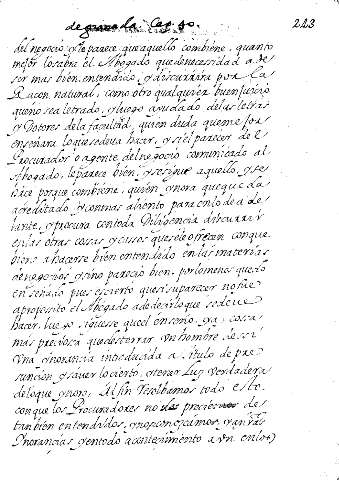 de granada Cap. 90. 223
del negocio y le parece que aquello combiene, quanto
mejor lo sabre el Abogado que de necesidad a de
ser mas bien entendido, y discurrira por la
Raçon natural, como otro qualquier buen juicio
que no sea letrado, y luego ayudado de las letras
y Dotores de la facultad, quien duda que mejor
enseñara lo que se deva hacer, y si el parecer del
Procurador o agente del negocio comunicado al
Abogado, le parece bien, y se sigue aquello, y se
hace porque combiene, quien ignora que queda
acreditado y con mas aliento para en lo de ade
lante, y procura con toda Diligencia discurrir
en las otras cosas y casos que se le ofrezcan con que
biene a hacerse bien entendido en las materias
de negocios, y si no parecio bien, por lo menos quedo
enseñado, pues es cierto que si su parecer no fue
a proposito el Abogado a de decir lo que se deve
hacer, luego siguese que el enseño ya, cosa
mas preciosa que desterrar un hombre de si
una ignorancia introducida a titulo de pre
suncion, y saver lo cierto, y tener Luz verdadera
de lo que ignoro, Al fin Resolbamos todo esto
con que los Procuradores no se precien de
tan bien entendidos, y no sconoscamos, y
Ignorancias, y en todo acontecimiento a un